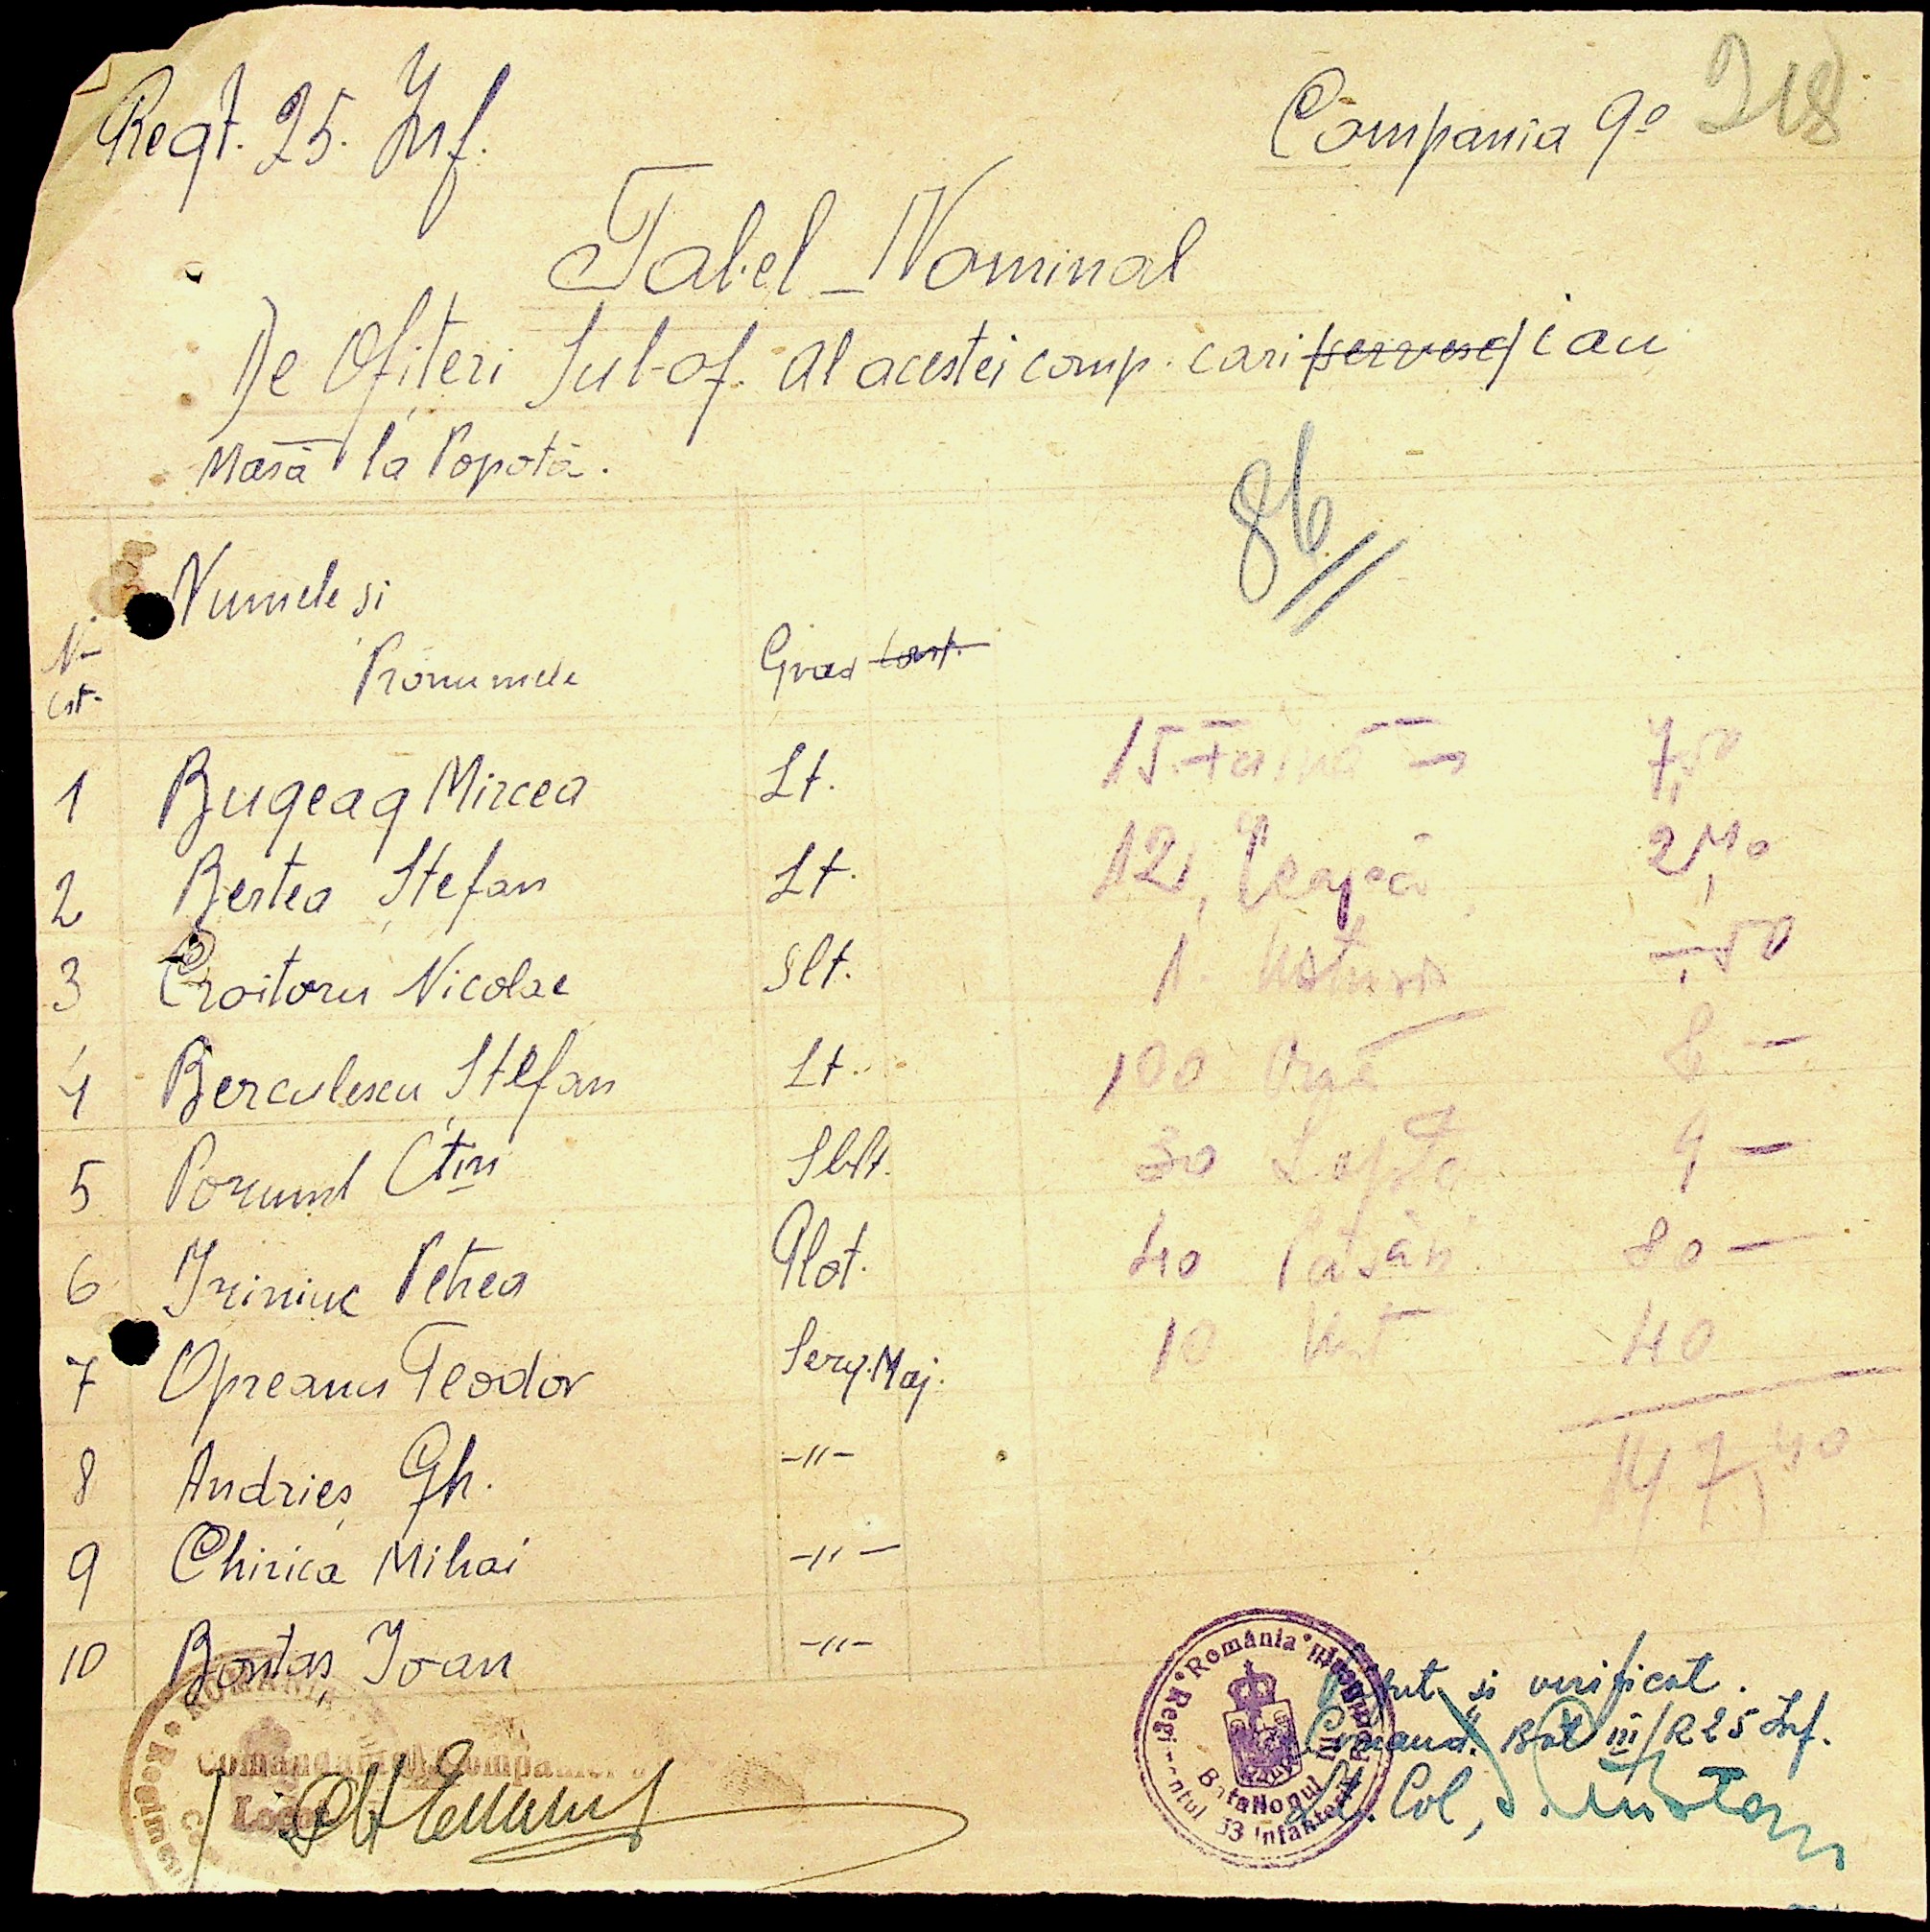 Regt. 25. Inf.
Compania 9ª 218
Tabel-Nominal
De Ofițeri Sub-of. al acestei comp. cari servesc iau
Masă la Popotă.
86
Nr crt.
Numele și Pronumele
Grad cont.
1 Bugeag Mircea Lt. 15 Faină 7,50
2 Bertea Ștefan Lt. 12, Ceapă 2,40
3 Croitoru Nicolae Slt. 1 -,50
4 Berculescu Ștefan Lt. 100 8 -
5 Porumb Ctin Sblt. 30 Lapte 9 -
6 Iriniuc Petrea Plot. 40 80 -
7 Opreanu Teodor Serg. Maj. 10 Unt 40
147,40
8 Andrieș Gh. -"-
9 Chirica Mihai -"-
10 Bontaș Ioan -"-
România
Batalionul III
Infanterie
ROMÂNIA
Comandantul Companiei
și verificat.
Comand. Bat III/R 25 Inf.
Lt. Col,